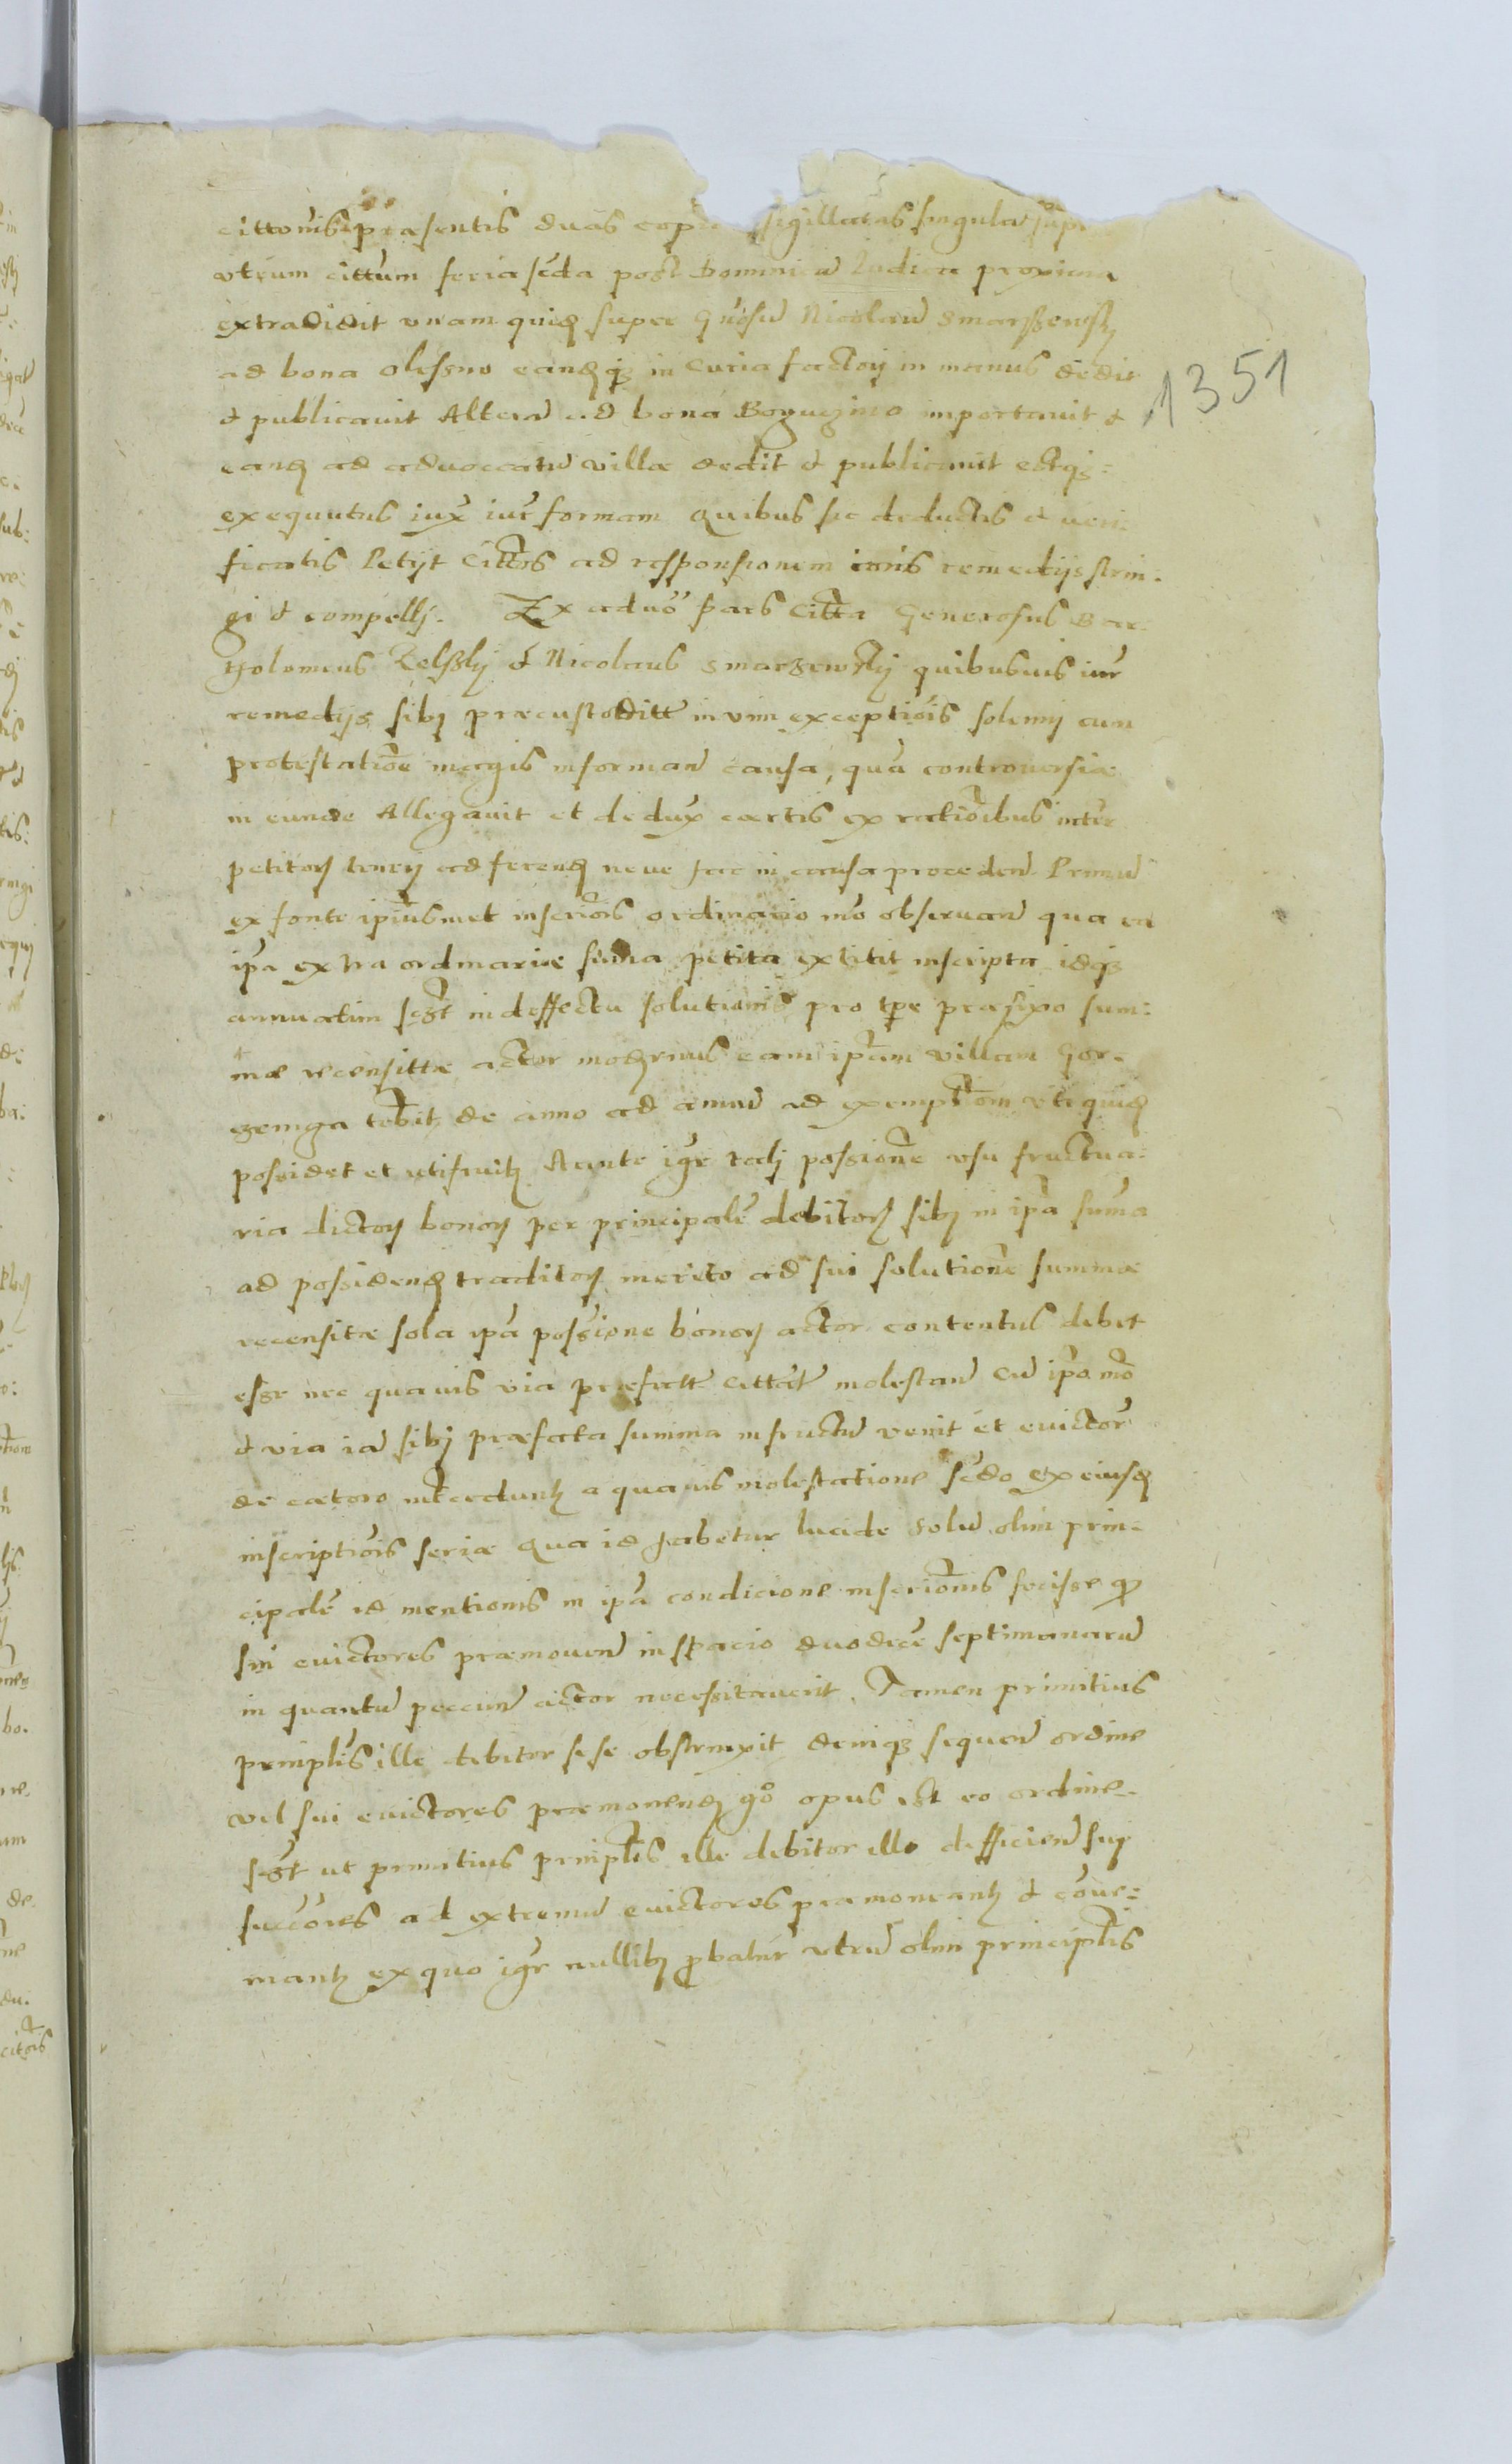 cittonis præsentis duas copias sigillatas singula sup
vtrum cittum feria scda post Dominicā Iudica proxima
extradidit vnam quid super Gnosū Nicolaū Smarszewskj
ad bona Olessno eandqz in Curia factorj in manus dedit
1351
& publicavit Alterā ad bona Boguczino importavit &
eand ad advoccatū villæ dedit & publicavit estqz
exequutus iux iur formam Quibus sic deductis & veri-
ficatis Petyt Cittos ad responsionem iuris remedijs strin-
gi & compellj. Ex advo pars Citta Generosus Bar-
tholomeus Zelsskj & Nicolaus Smarzewskj quibusvis iur
remedijs sibj præcustoditt in vim exceptiois solemnj cum
protestatione magis informan causa, quā controversiæ
in eunde Allegavit et dedux cærtis ex rationibus inter
petitorj tenerj ad ferend neve hac in causa proceden Primū
ex fonte ipsiusmet inscriois ordinario mo observan qua ea
ipa extra ordinarie suma petita extitit inscripta idqz
annuatim sest in deffectu solutionis pro tpre præfixo sum-
mæ recensittæ actor modernus eam ipsam villam Gor-
zeniga tebit de anno ad annū ad exemptiom uti quid
possidet et utifruit Stante igr talj possione usu fructua-
ria dictorj bonorj per principalē debitorj sibj in ipa suma
ad possidend traditorj merito ad sui solutione summæ
recensitæ sola ipa possione bonorj actor contentus debet
esse nec quavis via præfatt cittat molestan Cū ipo mo
& via iā sibj præfata summa in fructū venit et evictor
de cætero interdunt a quavis molestatione Scdo Ex eiusd
inscriptiois seriæ qua id habetur lucide solū olim prin-
cipalē id mentionis in ipa condicione inscrionis fecisse qd
sui evictores præmoven in spacio duodecē septimanarū
in quantū peccun actor necessitaverit. Tamen primitius
prinplis ille debitor sese obstrinxit deniqz sequen ordine
vel sui evictores præmonend qo opus est eo ordine-
sest ut primitius prinplis ille debitor illo defficien suj
succores ad extremū evictores præmoneant & cove-
niant ex quo igr nullibj probatur utrū olim principlis